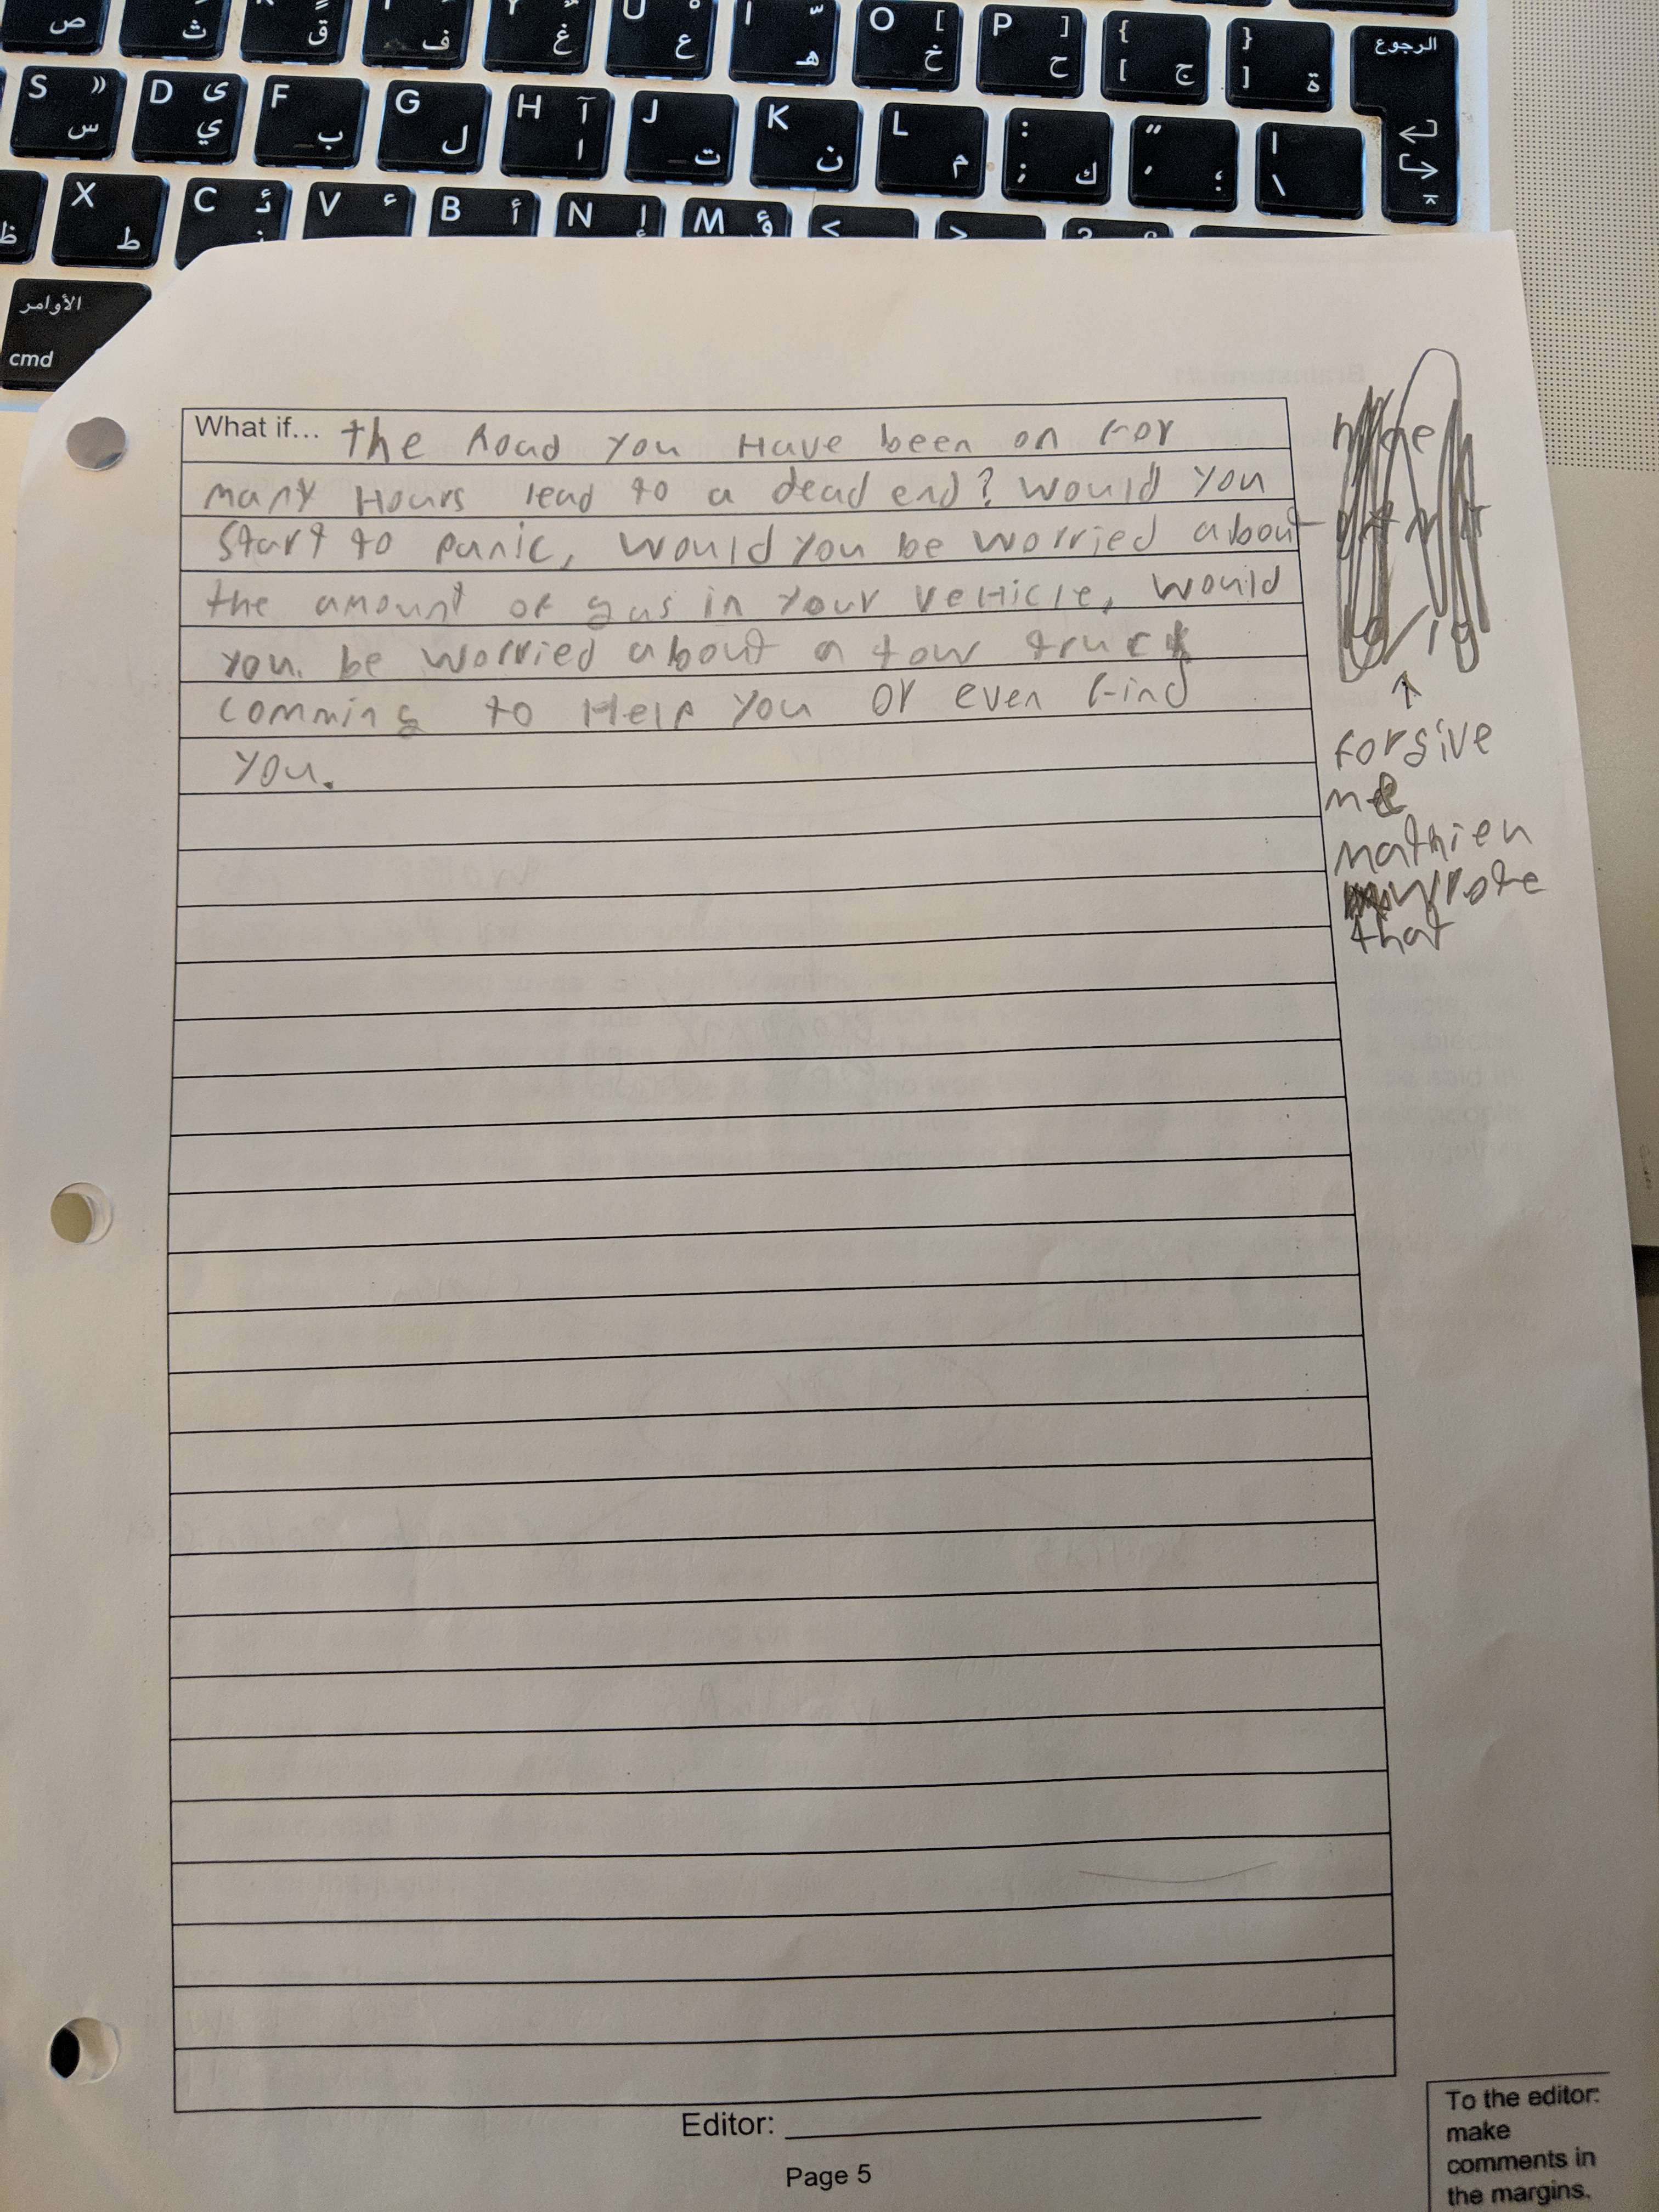 ص ث ق ف غ ع ه O [ خ P ] ح { [ ج } ] ة الرجوع
S » س D ى ي F ب G ل H آ ا J ت K ن L م : ; ك " ' ؛ | \
ظ X ط C ئ V ء B أ N إ M ؤ < > ?
الأوامر
cmd
What if... the Road you Have been on For
many Hours lead to a dead end? Would you
Start to panic, Would you be Worried about
the amount of gas in your veHicle, Would
you be Worried about a tow truck
comming to Help you or even Find
you.
forgive
me
mathieu
wrote
that
Editor:
Page 5
To the editor:
make
comments in
the margins.